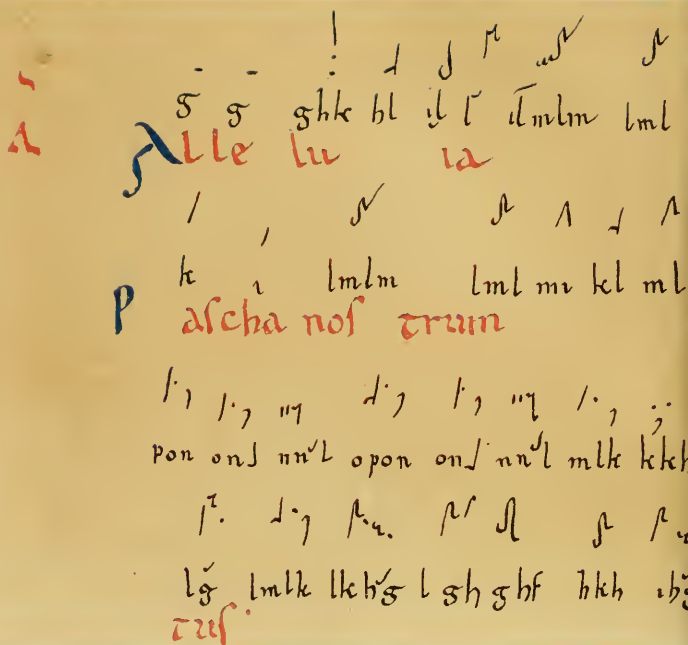 g g ghk hl il l ilmlm lml
A
Alle lu ia
k i lmlm lml mi kl ml
Pascha nos trum
pon ons nnl opon ons nnl mlk kkh
lg lmlk lkhg l gh ghf hkh ihg
tus